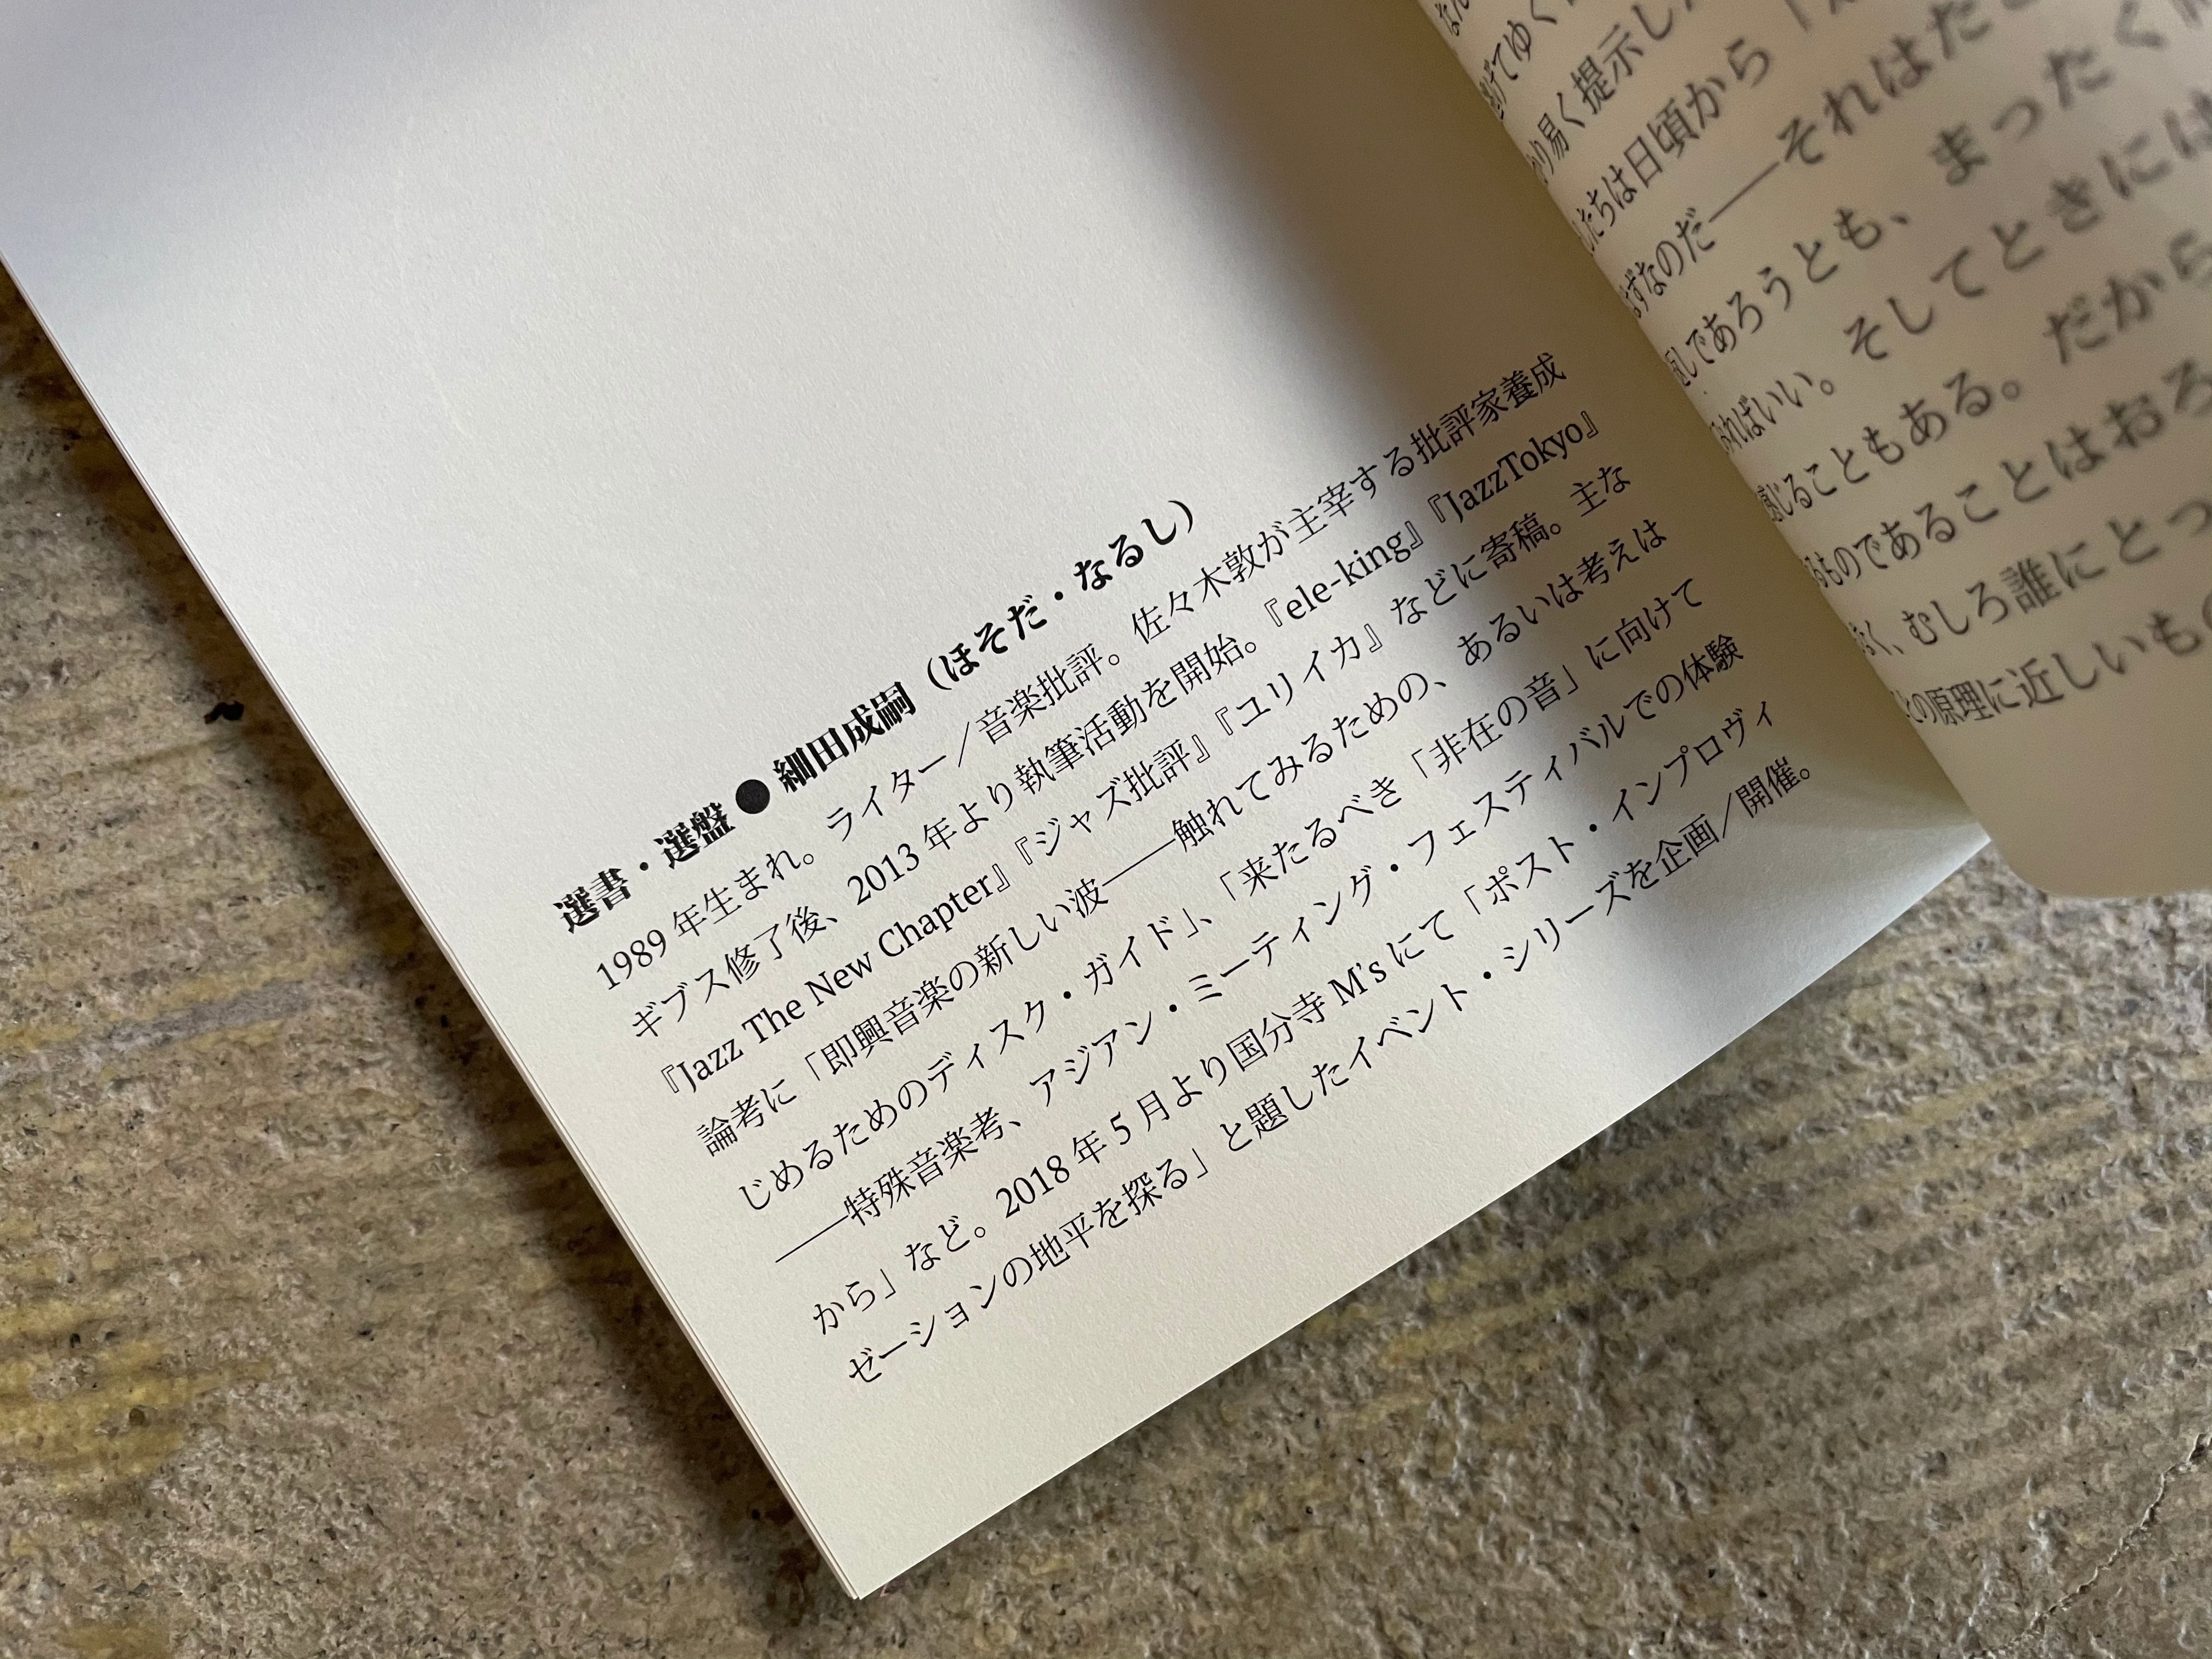 選書・選盤●細田成嗣（ほそだ・なるし）
1989年生まれ。ライター／音楽批評。佐々木敦が主宰する批評家養成
ギブス修了後、2013年より執筆活動を開始。『ele-king』『JazzTokyo』
『Jazz The New Chapter』『ジャズ批評』『ユリイカ』などに寄稿。主な
論考に「即興音楽の新しい波――触れてみるための、あるいは考えは
じめるためのディスク・ガイド」、「来たるべき「非在の音」に向けて
――特殊音楽考、アジアン・ミーティング・フェスティバルでの体験
から」など。2018年5月より国分寺M'sにて「ポスト・インプロヴィ
ゼーションの地平を探る」と題したイベント・シリーズを企画／開催。
易く提示し
たちは日頃から「
ずなのだ――それはた
であろうとも、まったく
ればいい。そしてときには
感じることもある。だから
ものであることはおろ
く、むしろ誰にとっ
の原理に近しいも